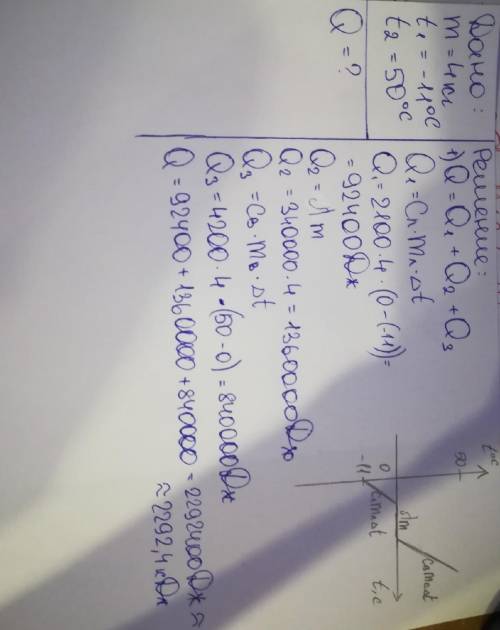 Дано:
m = 4 кг
t₁ = -11°C
t₂ = 50°C
Q = ?
Решение:
1) Q = Q₁ + Q₂ + Q₃
Q₁ = Cл · mл · Δt
Q₁ = 2100 · 4 · (0 - (-11)) =
= 92400 Дж
Q₂ = λm
Q₂ = 340000 · 4 = 1360000 Дж
Q₃ = Cв · mв · Δt
Q₃ = 4200 · 4 · (50 - 0) = 840000 Дж
Q = 92400 + 1360000 + 840000 = 2292400 Дж ≈
≈ 2292,4 кДж
t,°C
50
0
-11
λm
t, c